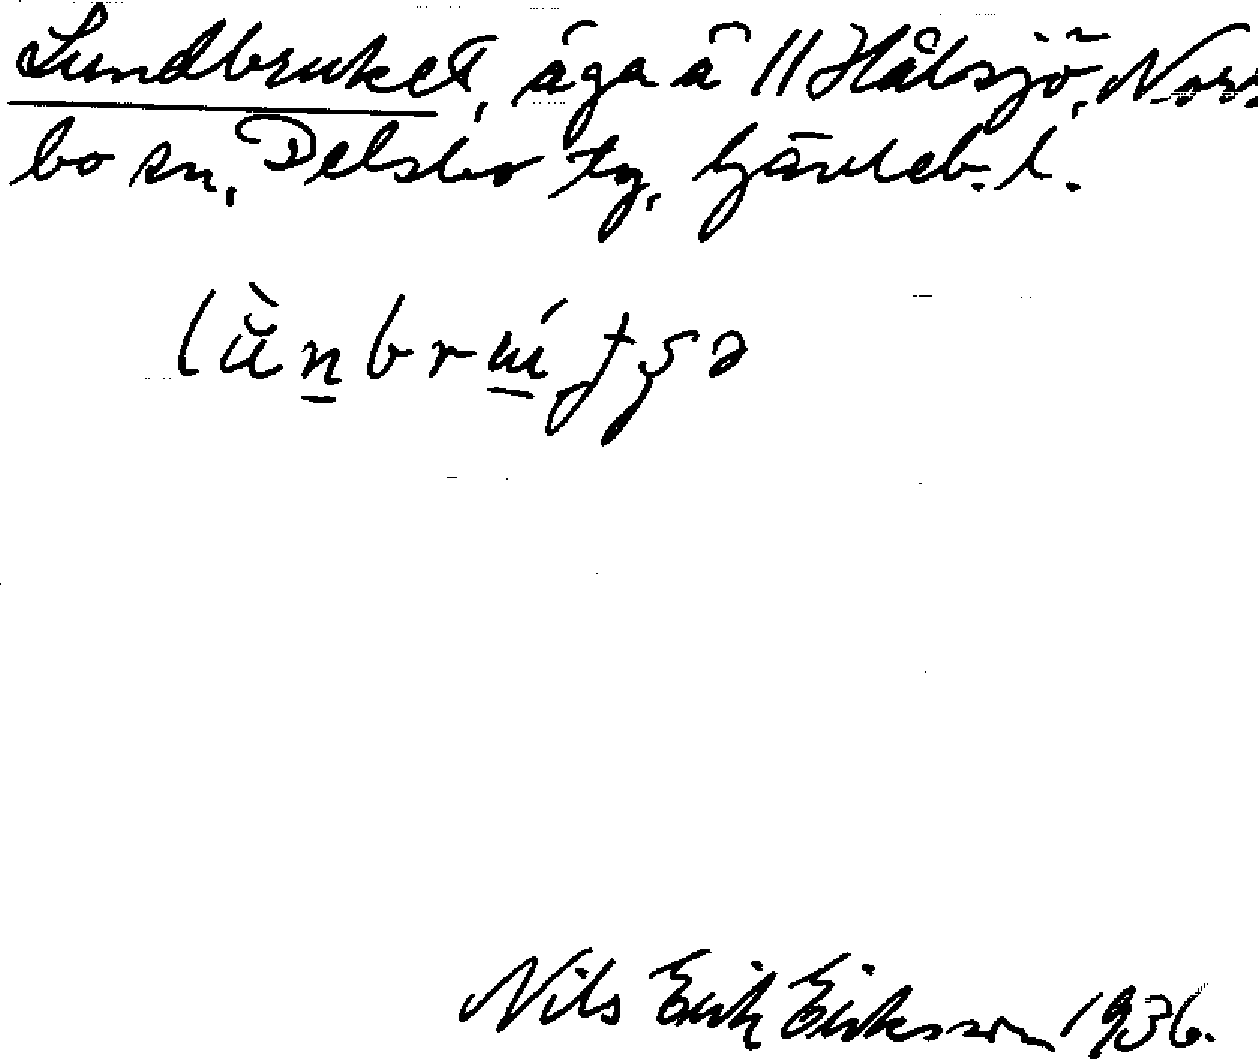 Lundbruket, äga å // Hålsjö, Norr
bo sn, Delsbo tg, Gävleb. l.
Nils Erik Eriksson 1936.